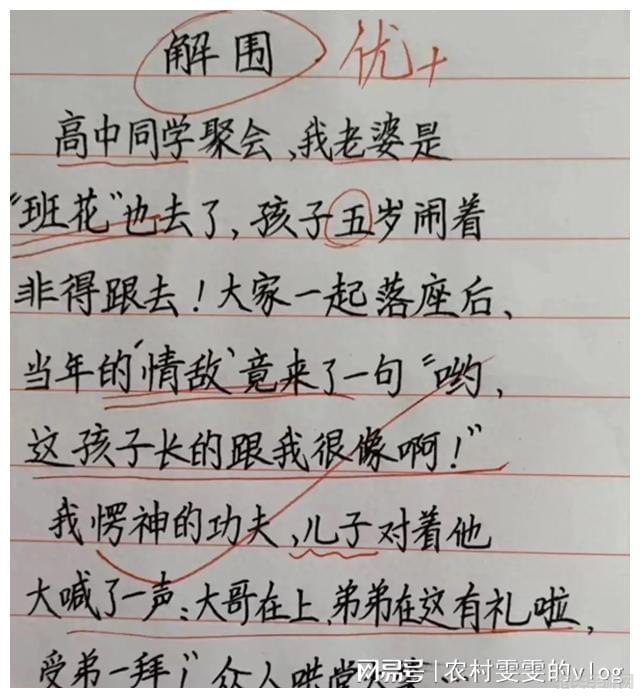 解围 优+
高中同学聚会、我老婆是
“班花”也去了,孩子五岁闹着
非得跟去！大家一起落座后、
当年的“情敌”竟来了一句“哟,
这孩子长的跟我很像啊！”
我愣神的功夫、儿子对着他
大喊了一声:大哥在上、弟弟在这有礼啦,
受弟一拜！”众人哄堂大笑
网易号 | 农村雯雯的vlog